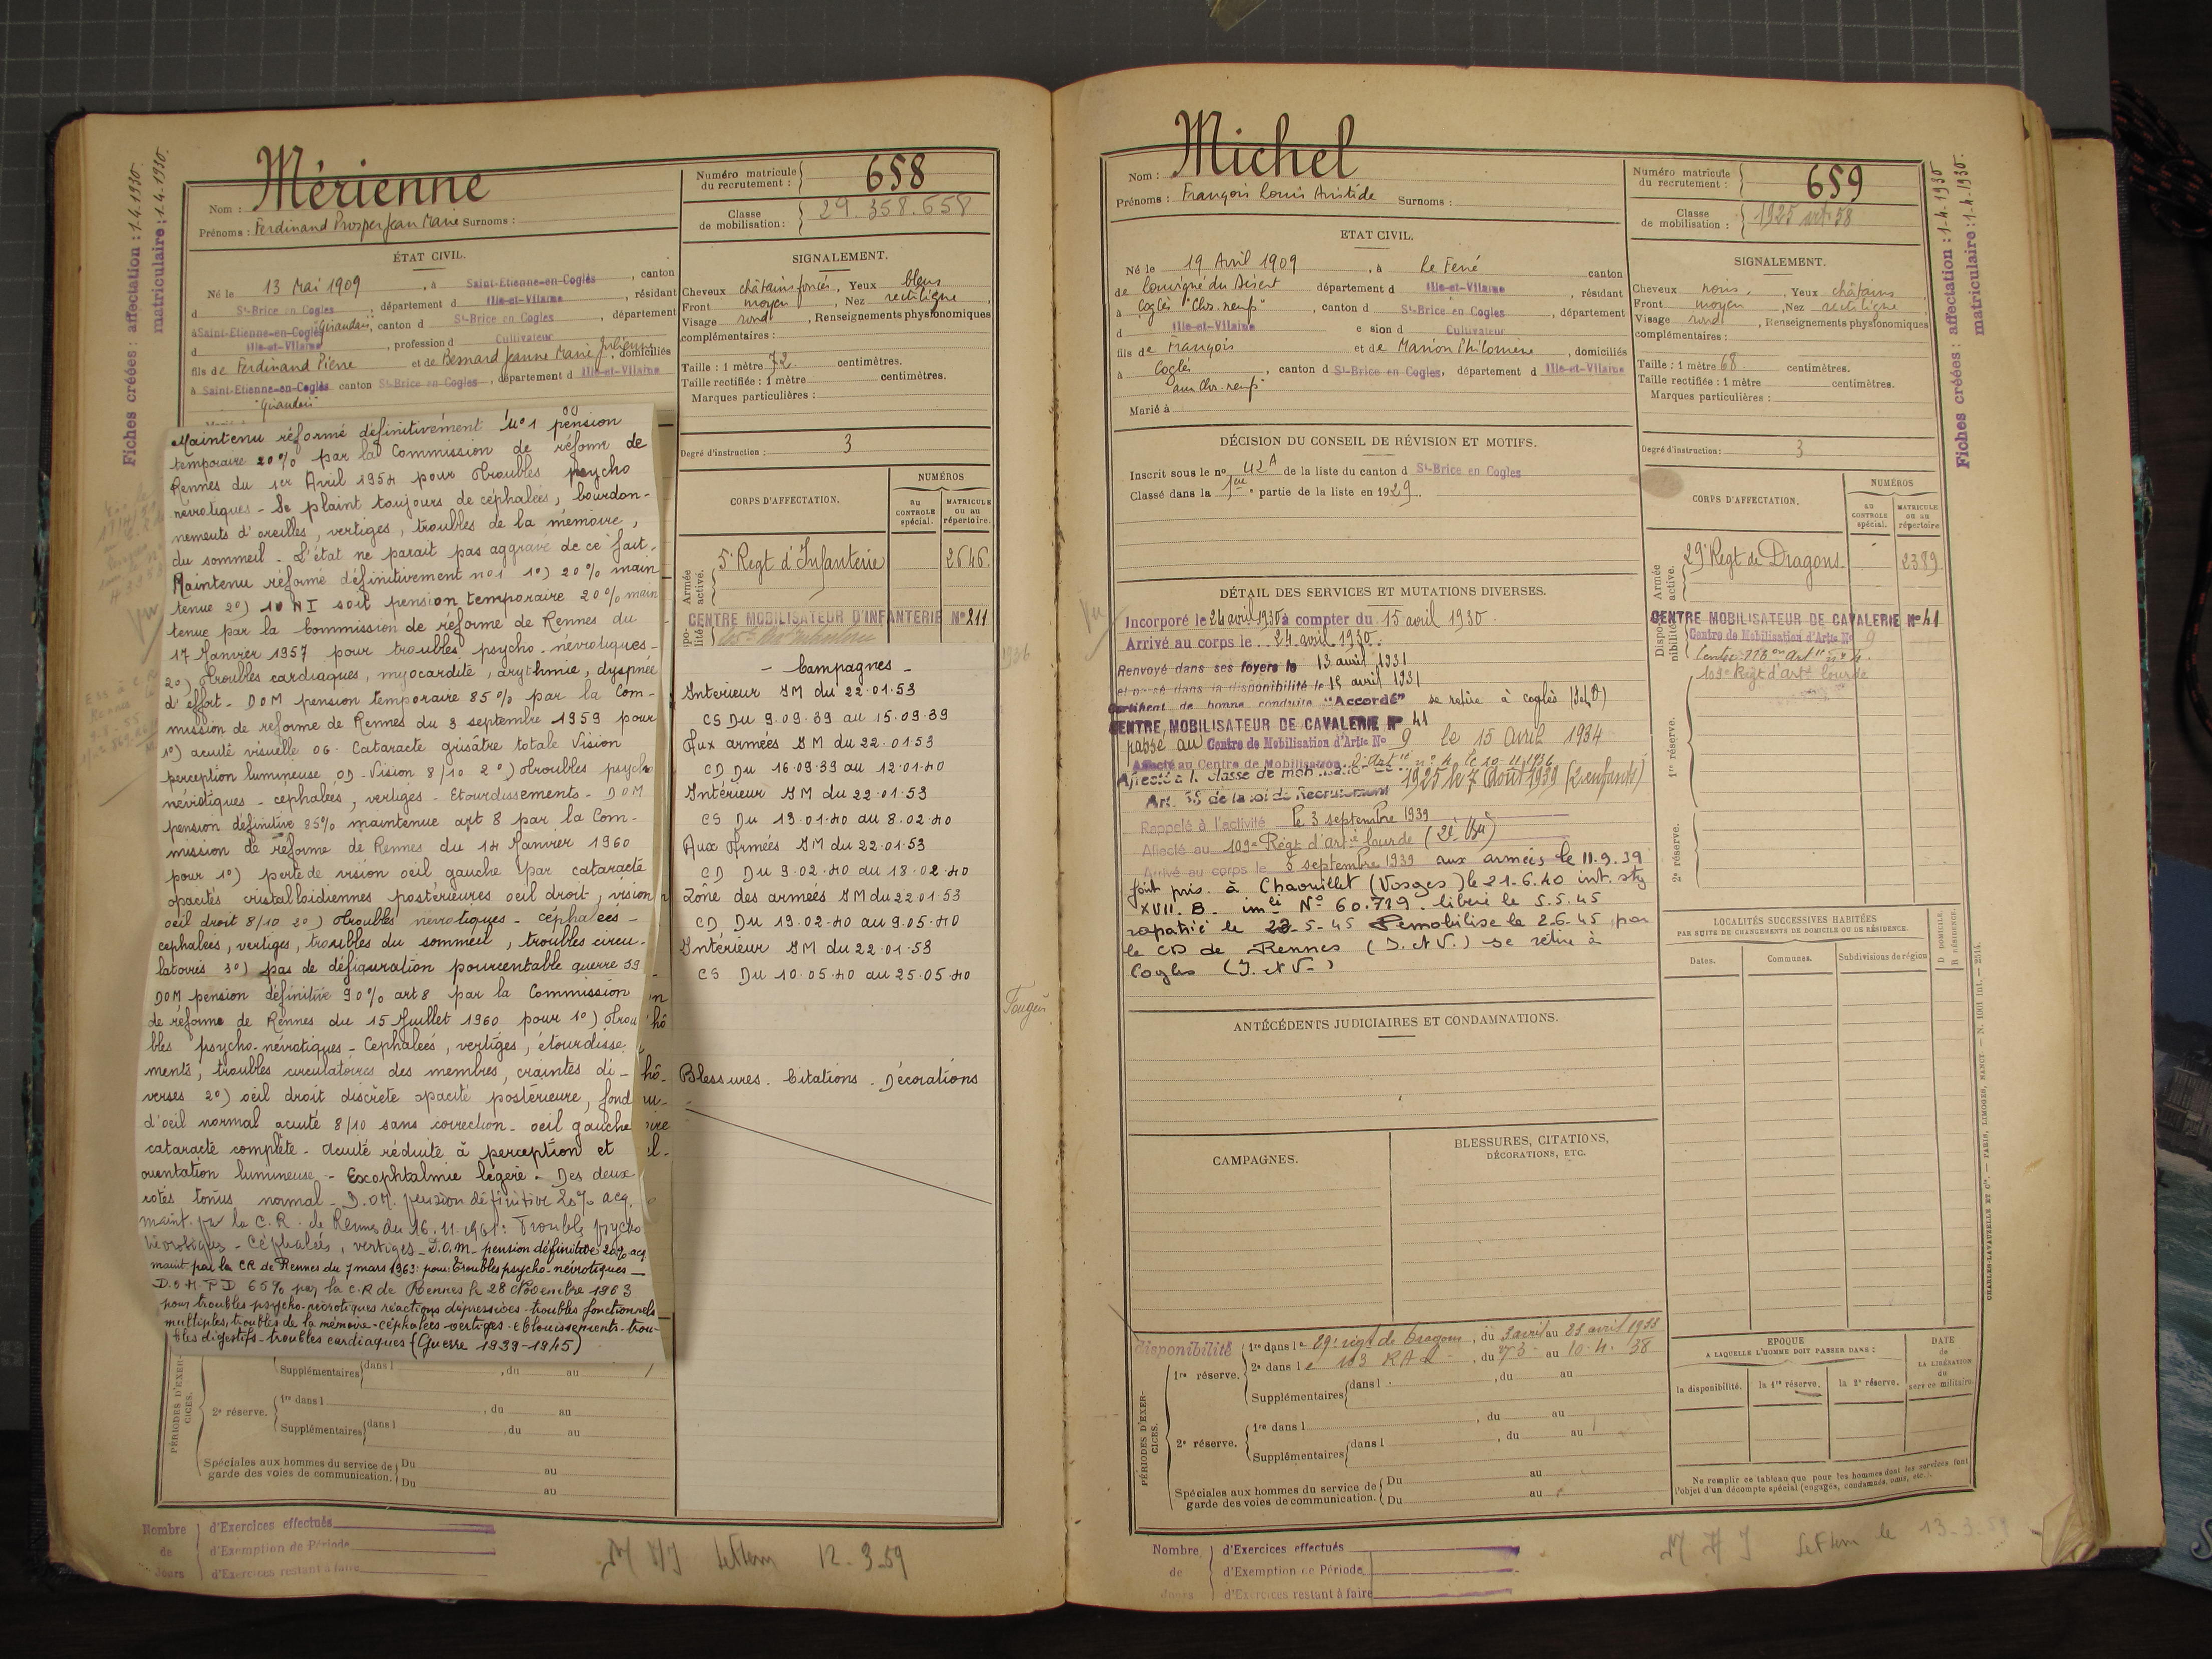 Fiches créées : affectation : 1.4.1930.
matriculaire : 1.4.1930.
Nom : Mérienne
Prénoms : Ferdinand Prosper Jean Marie Surnoms :
Numéro matricule du recrutement : 658
Classe de mobilisation : 29.358.658
ÉTAT CIVIL.
Né le 13 Mai 1909, à Saint-Etienne-en-Cogles, canton
d St-Brice en Cogles, département d Ille-et-Vilaine, résidant
à Saint-Etienne-en-Cogles "Giraudais", canton d St-Brice en Cogles, département
d Ille-et-Vilaine, profession d Cultivateur
fils de Ferdinand Pierre et de Besnard Jeanne Marie Julienne, domiciliés
à Saint-Etienne-en-Cogles canton St-Brice en Cogles, département d Ille-et-Vilaine
"Giraudais"
SIGNALEMENT.
Cheveux châtains foncés, Yeux bleus
Front moyen, Nez rectiligne,
Visage rond, Renseignements physionomiques
complémentaires :
Taille : 1 mètre 72 centimètres.
Taille rectifiée : 1 mètre centimètres.
Marques particulières :
Degré d'instruction : 3
CORPS D'AFFECTATION.
NUMÉROS
au CONTROLE spécial.
MATRICULE ou au répertoire.
Armée active.
5e Regt d'Infanterie 2646.
CENTRE MOBILISATEUR D'INFANTERIE No 211
Maintenu réformé définitivement No 1 pension
temporaire 20% par la Commission de réforme de
Rennes du 1er Avril 1954 pour troubles psycho
névrotiques - Se plaint toujours de céphalées, bourdon-
nements d'oreilles, vertiges, troubles de la mémoire,
du sommeil - L'état ne parait pas aggravé de ce fait.
Maintenu réformé définitivement no1 1o) 20% main
tenue 2o) 10 NI soit pension temporaire 20% main
tenue par la Commission de réforme de Rennes du
17 Janvier 1957 pour troubles psycho-névrotiques-
2o) troubles cardiaques, myocardite, arythmie, dyspnée
d'effort - DOM pension temporaire 85% par la Com-
mission de reforme de Rennes du 3 septembre 1959 pour
1o) acuité visuelle OG - Cataracte grisâtre totale Vision
perception lumineuse OD - Vision 8/10 2o) troubles psycho
névrotiques - céphalées, vertiges - Etourdissements - DOM
pension définitive 85% maintenue art 8 par la Com-
mission de réforme de Rennes du 14 Janvier 1960
pour 1o) perte de vision oeil gauche par cataracte
opacités cristalloïdiennes postérieures oeil droit, vision
oeil droit 8/10 2o) troubles névrotiques - céphalées -
céphalées, vertiges, troubles du sommeil, troubles circu-
latoires 3o) pas de défiguration pourcentable guerre 39
DOM pension définitive 90% art 8 par la Commission
de réforme de Rennes du 15 Juillet 1960 pour 1o) trou
bles psycho-névrotiques - Cephalées, vertiges, étourdisse
ments, troubles circulatoires des membres, craintes di-
verses 2o) oeil droit discrète opacité postérieure, fond
d'oeil normal acuité 8/10 sans correction - oeil gauche
cataracte complète - acuité réduite à perception et
orientation lumineuse - Exophtalmie légère - Des deux
cotés tonus normal - D.O.M. pension définitive 20% acq.
maint. par la C.R. de Rennes du 16.11.1961 : Troubles psycho
névrotiques - Céphalées, vertiges - D.O.M - pension définitive 20% acq
maint par la CR de Rennes du 7 mars 1963 : pour : troubles psycho-névrotiques -
D.O.M. PD 65% par la C.R de Rennes le 28 Novembre 1963
pour troubles psycho-névrotiques réactions dépressives - troubles fonctionnels
multiples, troubles de la mémoire - céphalées - vertiges - éblouissements - trou-
bles digestifs - troubles cardiaques (Guerre 1939-1945)
- Campagnes -
Intérieur IM du 22.01.53
CS Du 9.09.39 au 15.09.39
Aux armées IM du 22.01.53
CD Du 16.09.39 au 12.01.40
Intérieur IM du 22.01.53
CS Du 13.01.40 au 8.02.40
Aux Armées IM du 22.01.53
CD Du 9.02.40 au 18.02.40
Zone des armées IM du 22.01.53
CD Du 19.02.40 au 9.05.40
Intérieur IM du 22.01.53
CS Du 10.05.40 au 25.05.40
Blessures . Citations . Décorations
PÉRIODES D'EXERCICES.
Supplémentaires dans l , du au
2e réserve. 1re dans l , du au
Supplémentaires dans l , du au
Spéciales aux hommes du service de garde des voies de communication. Du au
Du au
Nombre de Jours
d'Exercices effectués
d'Exemption de Période
d'Exercices restant à faire
12-3-59
Nom : Michel
Prénoms : François Louis Aristide Surnoms :
Numéro matricule du recrutement : 659
Classe de mobilisation : 1925 art 58
Fiches créées : affectation : 1-4-1930
matriculaire : 1-4-1930.
ETAT CIVIL.
Né le 19 Avril 1909, à Le Ferré canton
de Louvigné du Désert département d Ille-et-Vilaine, résidant
à Coglès "Clos-neuf", canton d St-Brice en Cogles, département
d Ille-et-Vilaine e sion d Cultivateur
fils de François et de Marion Philomène, domiciliés
à Coglès, canton d St-Brice en Cogles, département d Ille-et-Vilaine
"au Clos-neuf"
Marié à
SIGNALEMENT.
Cheveux noirs, Yeux châtains
Front moyen, Nez rectiligne
Visage rond, Renseignements physionomiques
complémentaires :
Taille : 1 mètre 68 centimètres.
Taille rectifiée : 1 mètre centimètres.
Marques particulières :
Degré d'instruction : 3
DÉCISION DU CONSEIL DE RÉVISION ET MOTIFS.
Inscrit sous le no 42A de la liste du canton d St-Brice en Cogles
Classé dans la 1ère partie de la liste en 1929.
CORPS D'AFFECTATION.
NUMÉROS
au CONTROLE spécial.
MATRICULE ou au répertoire
Armée active.
29e Regt de Dragons 2389
CENTRE MOBILISATEUR DE CAVALERIE No 41
Disponibilité
Centre de Mobilisation d'Artie No 9
109e Régt d'Artie lourde
1re réserve.
2e réserve.
DÉTAIL DES SERVICES ET MUTATIONS DIVERSES.
Incorporé le 24 avril 1930 à compter du 15 avril 1930.
Arrivé au corps le 24 avril 1930.
Renvoyé dans ses foyers le 13 avril 1931
et passé dans la disponibilité le 15 avril 1931
Certificat de bonne conduite "Accordé" se retire à Coglès (I et V)
CENTRE MOBILISATEUR DE CAVALERIE No 41
passé au Centre de Mobilisation d'Artie No 9 le 15 avril 1934
Affecté au Centre de Mobilisation d'Artie no 4 le 10-11-1936
Affecté à la classe de mobilisation 1925 le 7 Août 1939 (2 enfants)
Art. 58 de la loi de Recrutement
Rappelé à l'activité le 3 septembre 1939
Affecté au 109e Régt d'Artie lourde
Arrivé au corps le 5 septembre 1939 aux armées le 11.9.39
fait pris. à Chaouillet (Vosges) le 21-6.40 int. stg
XVII. B. imle No 60.719. libéré le 5.5.45
rapatrié le 22-5-45 Démobilisé le 2.6.45 par
le CD de Rennes (I. et V.) se retire à
Coglès (I. et V.)
LOCALITÉS SUCCESSIVES HABITÉES
PAR SUITE DE CHANGEMENTS DE DOMICILE OU DE RÉSIDENCE.
Dates. Communes. Subdivisions de région
D DOMICILE. R RÉSIDENCE.
ANTÉCÉDENTS JUDICIAIRES ET CONDAMNATIONS.
CAMPAGNES.
BLESSURES, CITATIONS,
DÉCORATIONS, ETC.
CHARLES-LAVAUZELLE ET Cie. — PARIS, LIMOGES, NANCY
PÉRIODES D'EXERCICES.
Disponibilité
1re réserve. 1re dans le 29e régt de Dragons, du 3 avril au 23 avril 1933
2e dans le 103 RAL, du au 10.4.38
Supplémentaires dans l , du au
2e réserve. 1re dans l , du au
Supplémentaires dans l , du au
Spéciales aux hommes du service de garde des voies de communication. Du au
Du au
EPOQUE
A LAQUELLE L'HOMME DOIT PASSER DANS :
la disponibilité. la 1re réserve. la 2e réserve.
DATE de LA LIBÉRATION du service militaire.
Ne remplir ce tableau que pour les hommes dont les services font
l'objet d'un décompte spécial (engagés, condamnés, omis, etc.).
Nombre de Jours
d'Exercices effectués
d'Exemption de Période
d'Exercices restant à faire